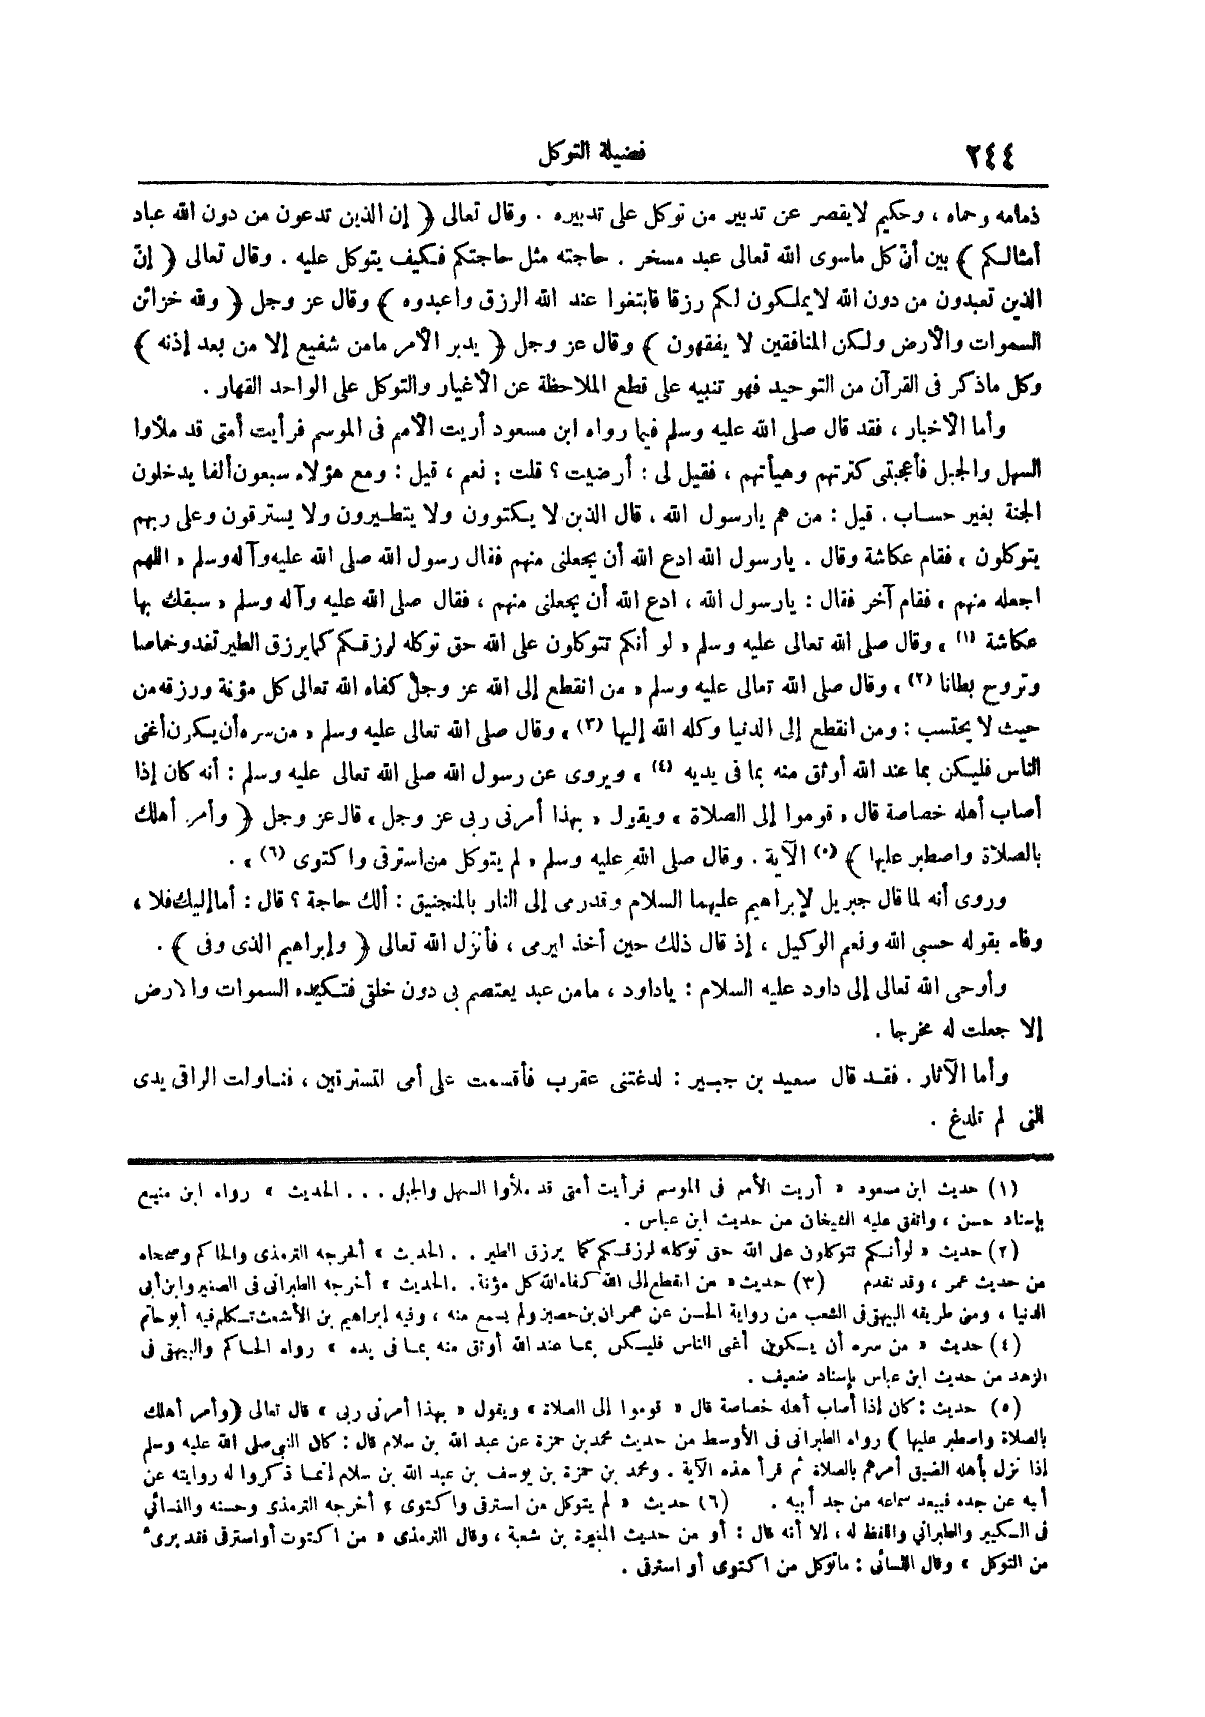 ٢٤٤
فضيلة التوكل
ذمامه وحماه ، وحكيم لايقصر عن تدبير من توكل على تدبيره . وقال تعالى ﴿ إن الذين تدعون من دون الله عباد
أمثالكم ﴾ بين أنّ كل ماسوى الله تعالى عبد مسخر . حاجته مثل حاجتكم فكيف يتوكل عليه . وقال تعالى ﴿ إنّ
الذين تعبدون من دون الله لايملكون لكم رزقا فابتغوا عند الله الرزق واعبدوه ﴾ وقال عز وجل ﴿ ولله خزائن
السموات والأرض ولكن المنافقين لا يفقهون ﴾ وقال عز وجل ﴿ يدبر الأمر مامن شفيع إلا من بعد إذنه ﴾
وكل ماذكر فى القرآن من التوحيد فهو تنبيه على قطع الملاحظة عن الأغيار والتوكل على الواحد القهار .
وأما الأخبار ، فقد قال صلى الله عليه وسلم فيما رواه ابن مسعود أريت الأمم فى الموسم فرأيت أمتى قد ملأوا
السهل والجبل فأعجبتى كثرتهم وهيأتهم ، فقيل لى : أرضيت ؟ قلت : نعم ، قيل : ومع هؤلاء سبعون ألفا يدخلون
الجنة بغير حساب . قيل : من هم يارسول الله ، قال الذين لا يكتوون ولا يتطيرون ولا يسترقون وعلى ربهم
يتوكلون » فقام عكاشة وقال . يارسول الله ادع الله أن يجعلنى منهم فقال رسول الله صلى الله عليه وآله وسلم « اللهم
اجعله منهم » فقام آخر فقال : يارسول الله ، ادع الله أن يجعلنى منهم ، فقال صلى الله عليه وآله وسلم « سبقك بها
عكاشة (١) » وقال صلى الله تعالى عليه وسلم « لو أنكم تتوكلون على الله حق توكله لرزقكم كما يرزق الطير تغدو خماصا
وتروح بطانا (٢) » وقال صلى الله تعالى عليه وسلم « من انقطع إلى الله عز وجلّ كفاه الله تعالى كل مؤنة ورزقه من
حيث لا يحتسب : ومن انقطع إلى الدنيا وكله الله إليها (٣) » وقال صلى الله تعالى عليه وسلم « من سره أن يكون أغنى
الناس فليكن بما عند الله أوثق منه بما فى يديه (٤) » ويروى عن رسول الله صلى الله تعالى عليه وسلم : أنه كان إذا
أصاب أهله خصاصة قال « قوموا إلى الصلاة » ويقول « بهذا أمرنى ربى عز وجل » قال عز وجل ﴿ وأمر أهلك
بالصلاة واصطبر عليها ﴾ (٥) الآية . وقال صلى الله عليه وسلم « لم يتوكل من استرقى واكتوى (٦) » .
وروى أنه لما قال جبريل لإبراهيم عليهما السلام وقد رمى إلى النار بالمنجنيق : ألك حاجة ؟ قال : أما إليك فلا ،
وفاء بقوله حسبى الله ونعم الوكيل ، إذ قال ذلك حين أخذ ليرمى ، فأنزل الله تعالى ﴿ وإبراهيم الذى وفى ﴾ .
وأوحى الله تعالى إلى داود عليه السلام : ياداود ، مامن عبد يعتصم بى دون خلقى فتكيده السموات والأرض
إلا جعلت له مخرجا .
وأما الآثار . فقد قال سعيد بن جبير : لدغتنى عقرب فأقسمت على أمى لتسترقين ، فناولت الراقى يدى
التى لم تلدغ .
(١) حديث ابن مسعود « أريت الأمم فى الموسم فرأيت أمتى قد ملأوا السهل والجبل ... الحديث » رواه ابن منيع
بإسناد حسن ، واتفق عليه الشيخان من حديث ابن عباس .
(٢) حديث « لو أنكم تتوكلون على الله حق توكله لرزقكم كما يرزق الطير . . الحديث » أخرجه الترمذى والحاكم وصححاه
من حديث عمر ، وقد تقدم (٣) حديث « من انقطع إلى الله كفاه الله كل مؤنة . . الحديث » أخرجه الطبرانى فى الصغير وابن أبى
الدنيا ، ومن طريقه البيهقى فى الشعب من رواية الحسن عن عمران بن حصين ولم يسمع منه ، وفيه إبراهيم بن الأشعث تكلم فيه أبو حاتم
(٤) حديث « من سره أن يكون أغنى الناس فليكن بما عند الله أوثق منه بما فى يده » رواه الحاكم والبيهقى فى
الزهد من حديث ابن عباس بإسناد ضعيف .
(٥) حديث : كان إذا أصاب أهله خصاصة قال « قوموا إلى الصلاة » ويقول « بهذا أمرنى ربى » قال تعالى ﴿ وأمر أهلك
بالصلاة واصطبر عليها ﴾ رواه الطبرانى فى الأوسط من حديث محمد بن حمزة عن عبد الله بن سلام قال : كان النبى صلى الله عليه وسلم
إذا نزل بأهله الضيق أمرهم بالصلاة ثم قرأ هذه الآية . ومحمد بن حمزة بن يوسف بن عبد الله بن سلام إنما ذكروا له روايته عن
أبيه عن جده فيبعد سماعه من جد أبيه . (٦) حديث « لم يتوكل من استرقى واكتوى » أخرجه الترمذى وحسنه والنسائي
فى الكبير والطبراني واللفظ له ، إلا أنه قال : أو من حديث المغيرة بن شعبة ، وقال الترمذى « من اكتوى أو استرقى فقد برىء
من التوكل » وقال النسائى : ماتوكل من اكتوى أو استرقى .